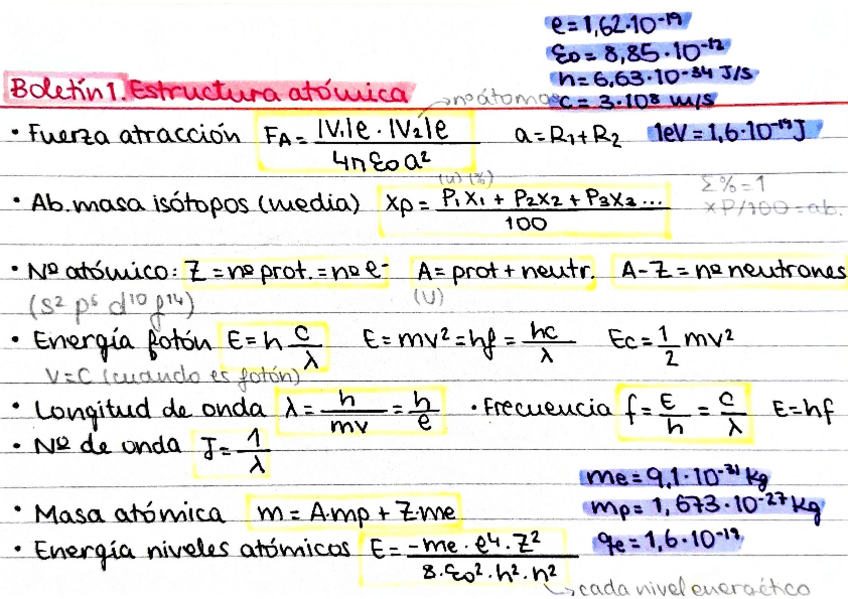 e = 1,62·10⁻¹⁹
ε₀ = 8,85·10⁻¹²
h = 6,63·10⁻³⁴ J/s
Boletín 1. Estructura atómica → nº átomos c = 3·10⁸ m/s
• Fuerza atracción F_A = |V₁|e · |V₂|e / 4πε₀a² a = R₁ + R₂ 1eV = 1,6·10⁻¹⁹ J
(u) (%) Σ% = 1
• Ab. masa isótopos (media) Xp = P₁X₁ + P₂X₂ + P₃X₃... / 100 xP/100 = ab.
• Nº atómico: Z = nº prot. = nº e⁻ A = prot + neutr. A-Z = nº neutrones
(s² p⁶ d¹⁰ f¹⁴) (U)
• Energía fotón E = h c/λ E = mv² = hf = hc/λ Ec = 1/2 mv²
V = C (cuando es fotón)
• Longitud de onda λ = h/mv = h/e • Frecuencia f = E/h = c/λ E = hf
• Nº de onda J = 1/λ
me = 9,1·10⁻³¹ kg
• Masa atómica m = A·mp + Z·me mp = 1,673·10⁻²⁷ kg
• Energía niveles atómicos E = -me · e⁴ · Z² / 8·ε₀²·h²·n² qe = 1,6·10⁻¹⁹
→ cada nivel energético